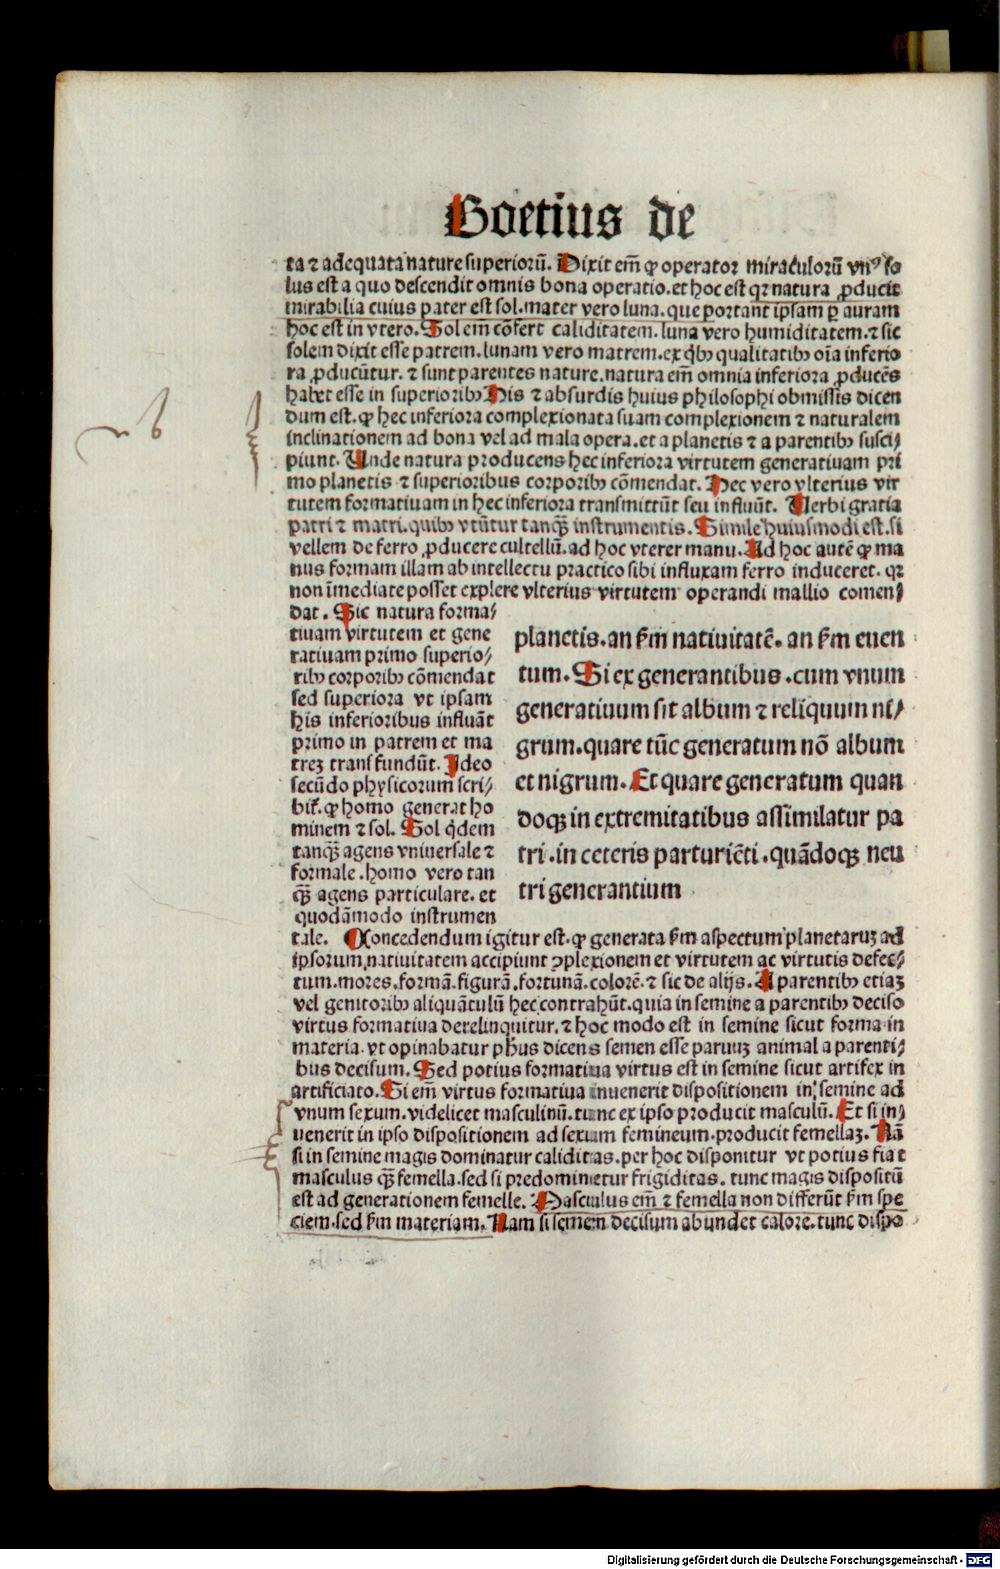 Boetius de
ta ⁊ adequata nature superioꝝ̄. Dixit em̄ ꝙ operator miraculorū vnꝰ so
lus est a quo descendit omnis bona operatio. et hoc est qꝛ natura ꝓducit
mirabilia cuius pater est sol. mater vero luna. que portant ipsam ꝑ auram
hoc est in vtero. Sol em̄ cōfert caliditatem. luna vero humiditatem. ⁊ sic
solem dixit esse patrem. lunam vero matrem. ex q̄bꝫ qualitatibꝫ oīa inferio
ra ꝓducūtur. ⁊ sunt parentes nature. natura em̄ omnia inferiora ꝓducēs
habet esse in superioribꝫ His ⁊ absurdis huius philosophi obmissis dicen
dum est. ꝙ hec inferiora complexionata suam complexionem ⁊ naturalem
inclinationem ad bona vel ad mala opera. et a planetis ⁊ a parentibꝫ susci/
piunt. Unde natura producens hec inferiora virtutem generatiuam pri
mo planetis ⁊ superioribus corporibꝫ cōmendat. Hec vero vlterius vir
tutem formatiuam in hec inferiora transmittūt seu influūt. Uerbi gratia
patri ⁊ matri. quibꝫ vtūtur tanqꝫ̄ instrumentis. Simile huiusmodi est. si
vellem de ferro ꝓducere cultellū. ad hoc vterer manu. Ad hoc autē ꝙ ma
nus formam illam ab intellectu practico sibi influxam ferro induceret. qꝛ
non īmediate posset explere vlterius virtutem operandi mallio comen/
dat. Sic natura forma/
tiuam virtutem et gene
ratiuam primo superio/
ribꝫ corporibꝫ cōmendat
sed superiora vt ipsam
his inferioribus influāt
primo in patrem et ma
treꝫ transfundūt. Ideo
secūdo physicorum scri/
bit̄. ꝙ homo generat ho
minem ⁊ sol. Sol q̄dem
tanqꝫ̄ agens vniuersale ⁊
formale. homo vero tan
qꝫ̄ agens particulare. et
quodāmodo instrumen
tale. Concedendum igitur est. ꝙ generata ẜm aspectum planetaruꝫ ad
planetis. an ẜm natiuitatē. an ẜm euen
tum. Si ex generantibus. cum vnum
generatiuum sit album ⁊ reliquum ni/
grum. quare tūc generatum nō album
et nigrum. Et quare generatum quan
doqꝫ in extremitatibus assimilatur pa
tri. in ceteris parturiēti. quādoqꝫ neu
tri generantium
ipsorum natiuitatem accipiunt ꝯplexionem et virtutem ac virtutis defec/
tum. mores. formā. figurā. fortunā. colorē. ⁊ sic de alijs. A parentibꝫ etiaꝫ
vel genitoribꝫ aliquātulū hec contrahūt. quia in semine a parentibꝫ deciso
virtus formatiua derelinquitur. ⁊ hoc modo est in semine sicut forma in
materia. vt opinabatur ph̄us dicens semen esse paruuꝫ animal a parenti/
bus decisum. Sed potius formatiua virtus est in semine sicut artifex in
artificiato. Si em̄ virtus formatiua inuenerit dispositionem in semine ad
vnum sexum. videlicet masculinū. tunc ex ipso producit masculū. Et si in/
uenerit in ipso dispositionem ad sexum femineum. producit femellaꝫ. Nā
si in semine magis dominatur caliditas. per hoc disponitur vt potius fiat
masculus qꝫ̄ femella. sed si predominetur frigiditas. tunc magis dispositū
est ad generationem femelle. Masculus em̄ ⁊ femella non differūt ẜm spe
ciem. sed ẜm materiam. Nam si semen decisum abundet calore. tunc dispo
Digitalisierung gefördert durch die Deutsche Forschungsgemeinschaft - DFG